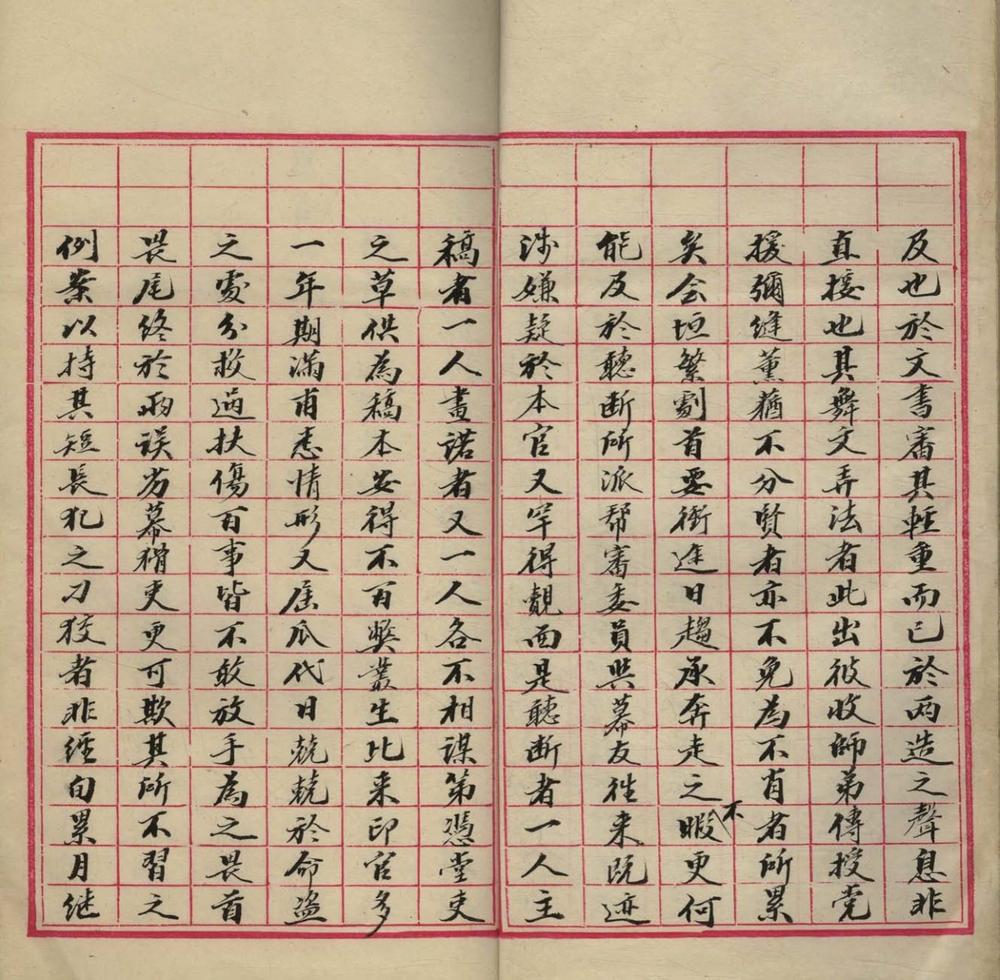 及也於文書審其輕重而已於兩造之聲息非
直接也其舞文弄法者此出彼收師弟傳授党
援彌縫薰蕕不分賢者亦不免為不肖者所累
矣会垣繁劇首要衝途日趨承奔走之不暇更何
能及於聽断所派帮審委員與幕友往来既迹
涉嫌疑於本官又罕得覿面是聽断者一人主
稿者一人畫諾者又一人各不相謀第憑堂吏
之草供為稿本安得不百弊叢生比来印官多
一年期滿甫悉情形又届瓜代日兢兢於命盗
之處分救過扶傷百事皆不敢放手為之畏首
畏尾終於兩误劣幕猾吏更可欺其所不習之
例案以持其短長犯之刁狡者非經旬累月继